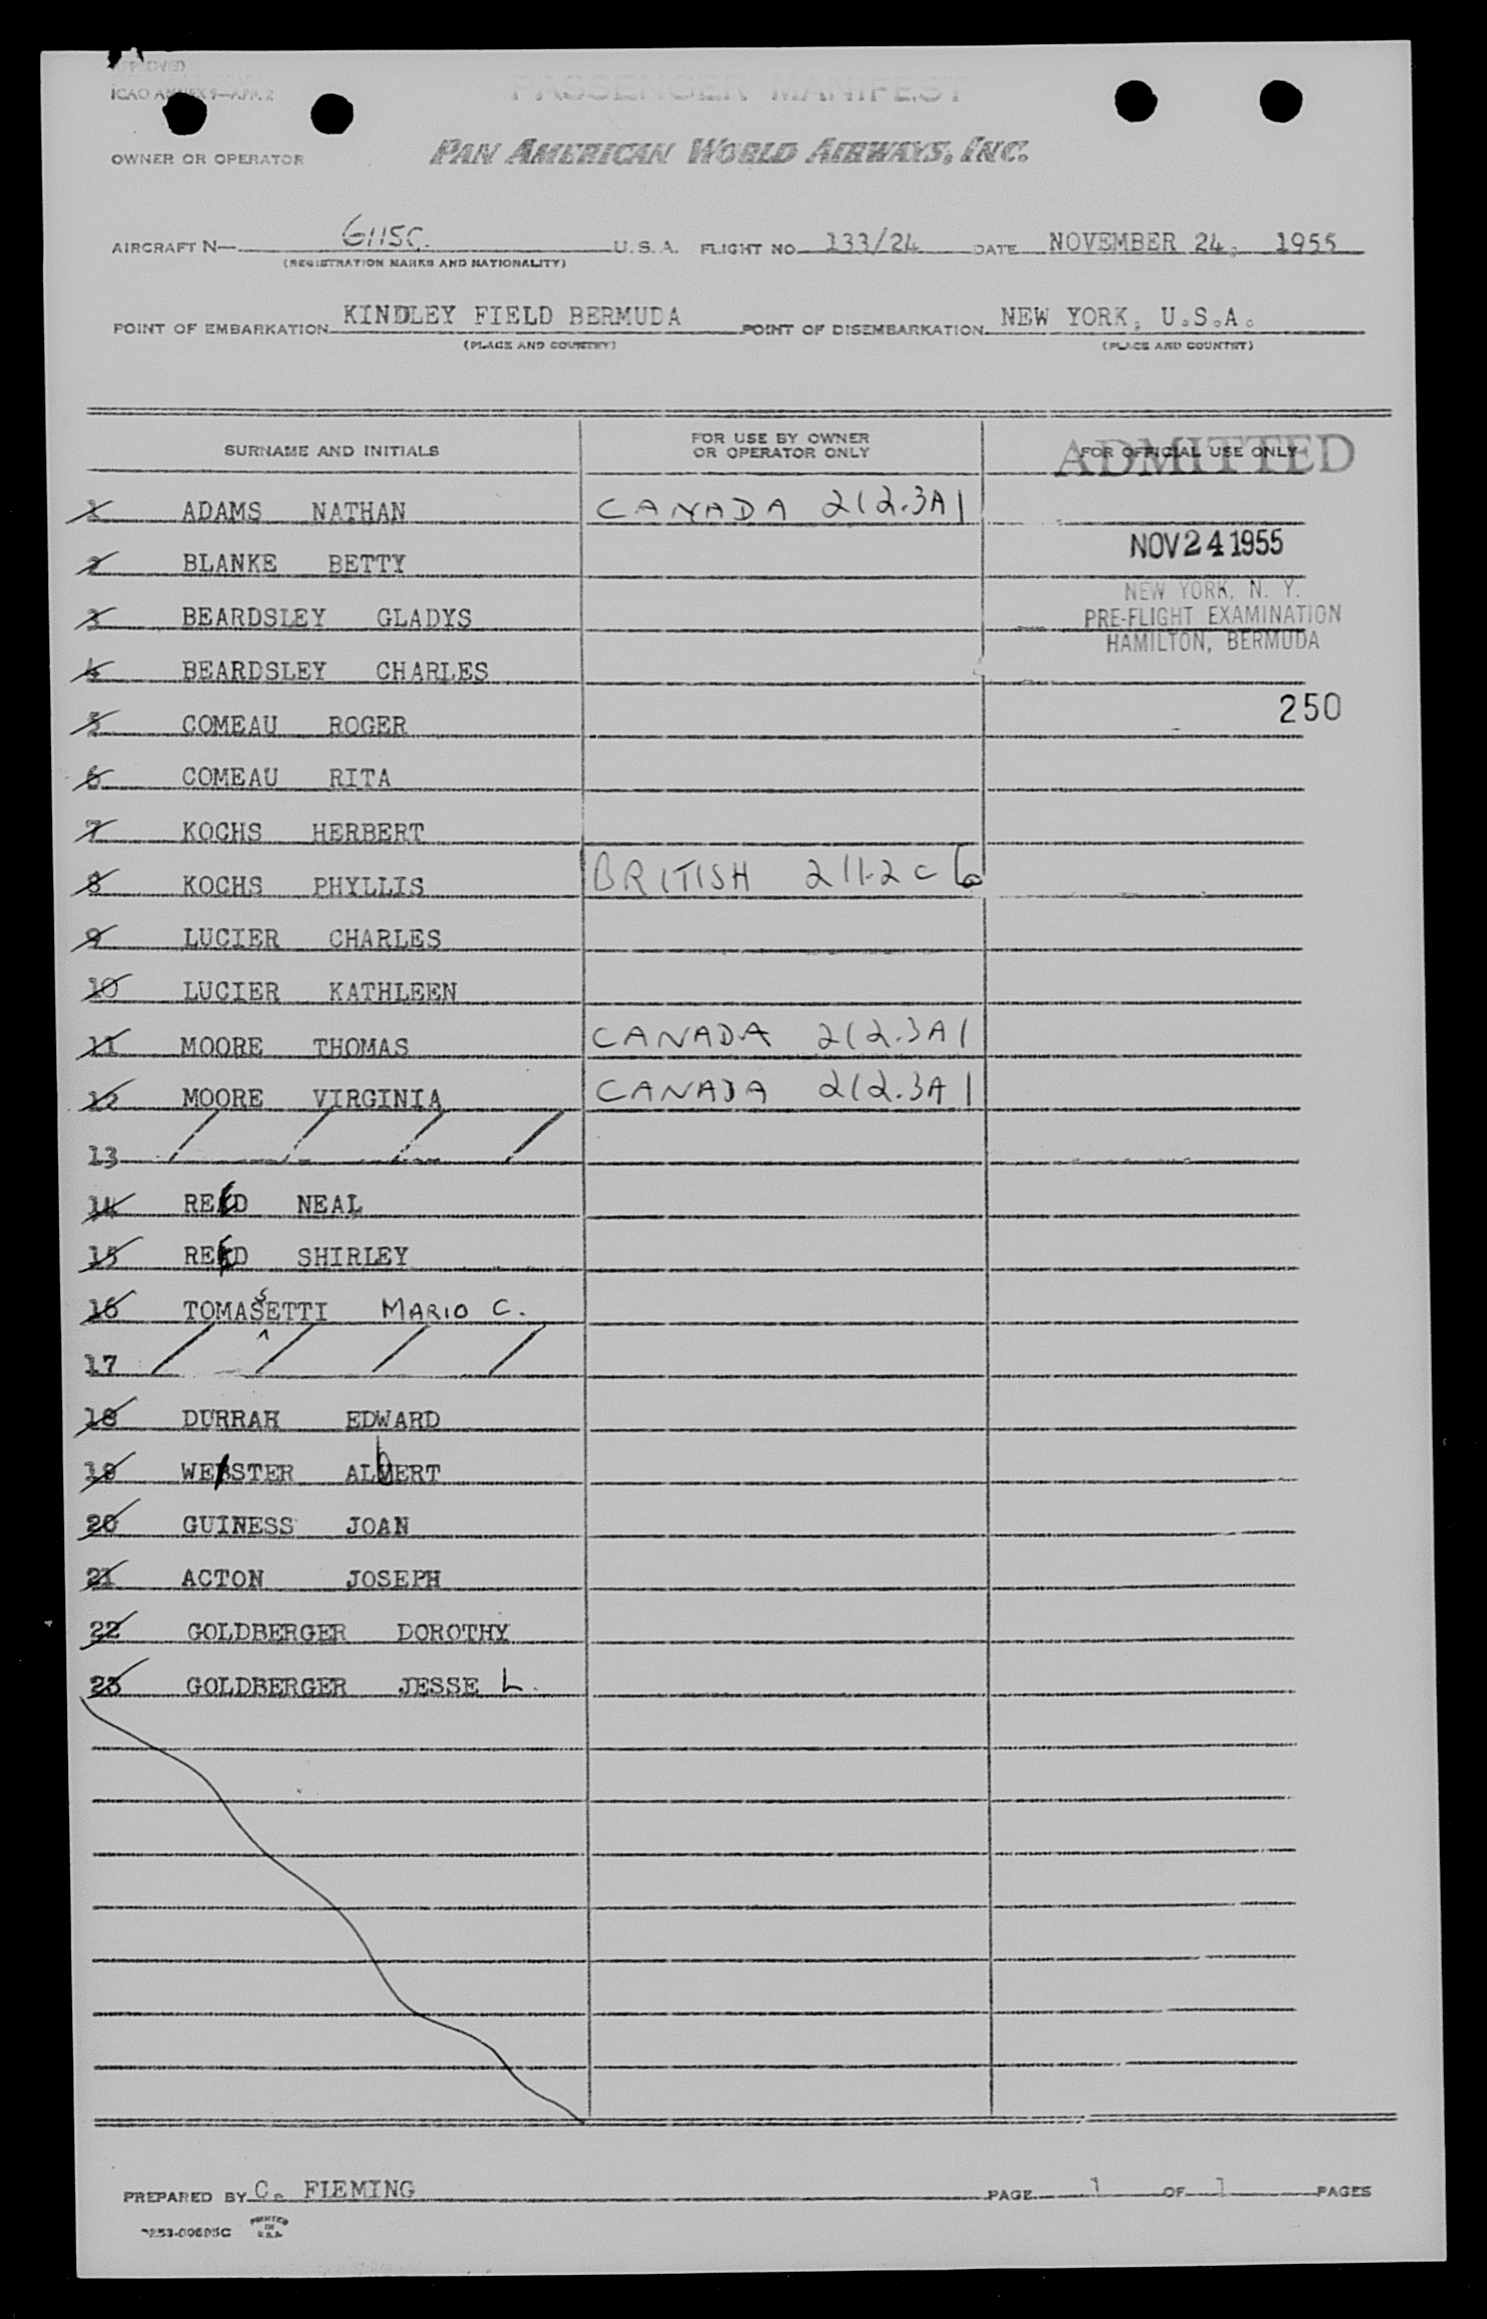 APPROVED
ICAO ANNEX 9—APP. 2
PASSENGER MANIFEST
OWNER OR OPERATOR PAN AMERICAN WORLD AIRWAYS, INC.
AIRCRAFT N— 6115C. U.S.A. FLIGHT NO 133/24 DATE NOVEMBER 24, 1955
(REGISTRATION MARKS AND NATIONALITY)
POINT OF EMBARKATION KINDLEY FIELD BERMUDA POINT OF DISEMBARKATION NEW YORK, U.S.A.
(PLACE AND COUNTRY) (PLACE AND COUNTRY)
SURNAME AND INITIALS FOR USE BY OWNER OR OPERATOR ONLY FOR OFFICIAL USE ONLY
ADMITTED
1 ADAMS NATHAN CANADA 212.3A1
NOV 24 1955
2 BLANKE BETTY
NEW YORK, N. Y.
3 BEARDSLEY GLADYS PRE-FLIGHT EXAMINATION
HAMILTON, BERMUDA
4 BEARDSLEY CHARLES
250
5 COMEAU ROGER
6 COMEAU RITA
7 KOCHS HERBERT
8 KOCHS PHYLLIS BRITISH 211.2c6
9 LUCIER CHARLES
10 LUCIER KATHLEEN
11 MOORE THOMAS CANADA 212.3A1
12 MOORE VIRGINIA CANADA 212.3A1
13 / / / /
14 REED NEAL
15 REED SHIRLEY
16 TOMASSETTI MARIO C.
17 / / / /
18 DURRAH EDWARD
19 WEBSTER ALBERT
20 GUINESS JOAN
21 ACTON JOSEPH
22 GOLDBERGER DOROTHY
23 GOLDBERGER JESSE L.
PREPARED BY C. FLEMING PAGE 1 OF 1 PAGES
PRINTED IN U.S.A.